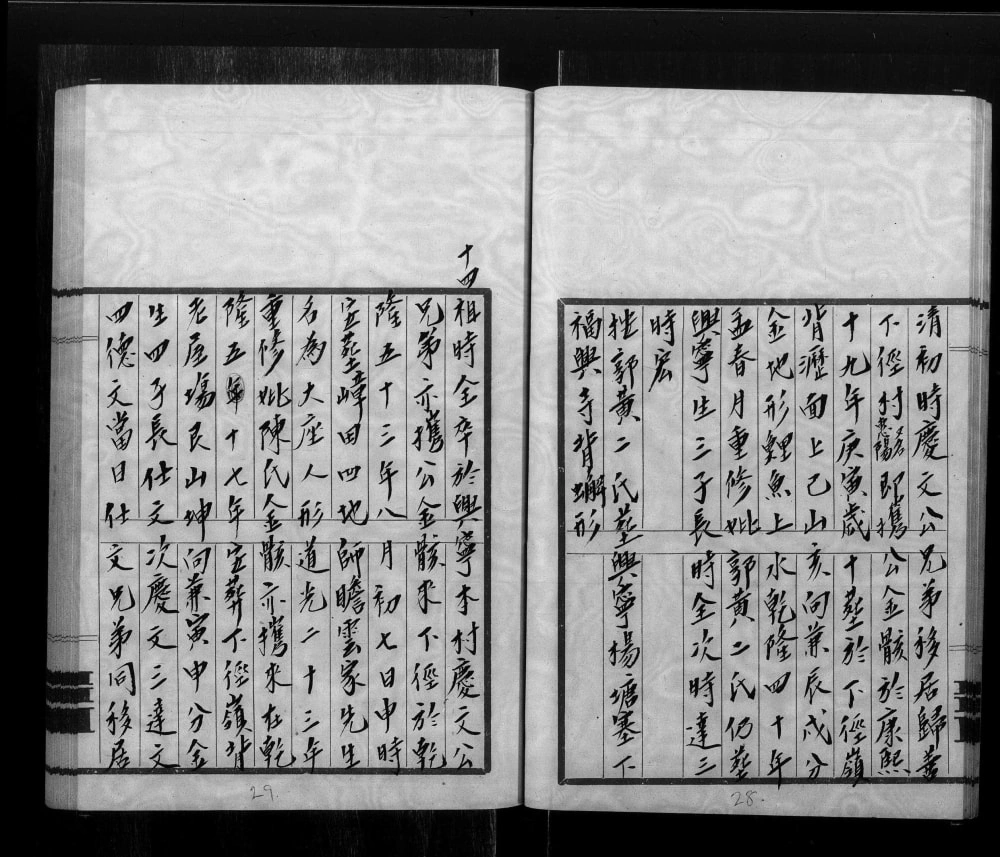 清初時慶文公兄弟移居歸善
下徑村名惠陽即攜公金骸於康熙
十九年庚寅歲十塟於下徑嶺
背瀝面上巳山亥向兼辰戌分
金地形鯉魚上水乾隆四十年
孟春月重修妣郭黃二氏仍塟
興寧生三子長時全次時達三
時宏
妣郭黃二氏塟興寧楊塘塞下
福興寺背蠏形
28.
十四祖時全卒於興寧本村慶文公
兄弟亦攜公金骸來下徑於乾
隆五十三年八月初七日申時
安塟嶂田四地師瞻雲家先生
名為大座人形道光二十三年
重修妣陳氏金骸亦攜來在乾
隆五十七年安葬下徑嶺背
老屋塲艮山坤向兼寅申分金
生四子長仕文次慶文三達文
四德文當日仕文兄弟同移居
29.